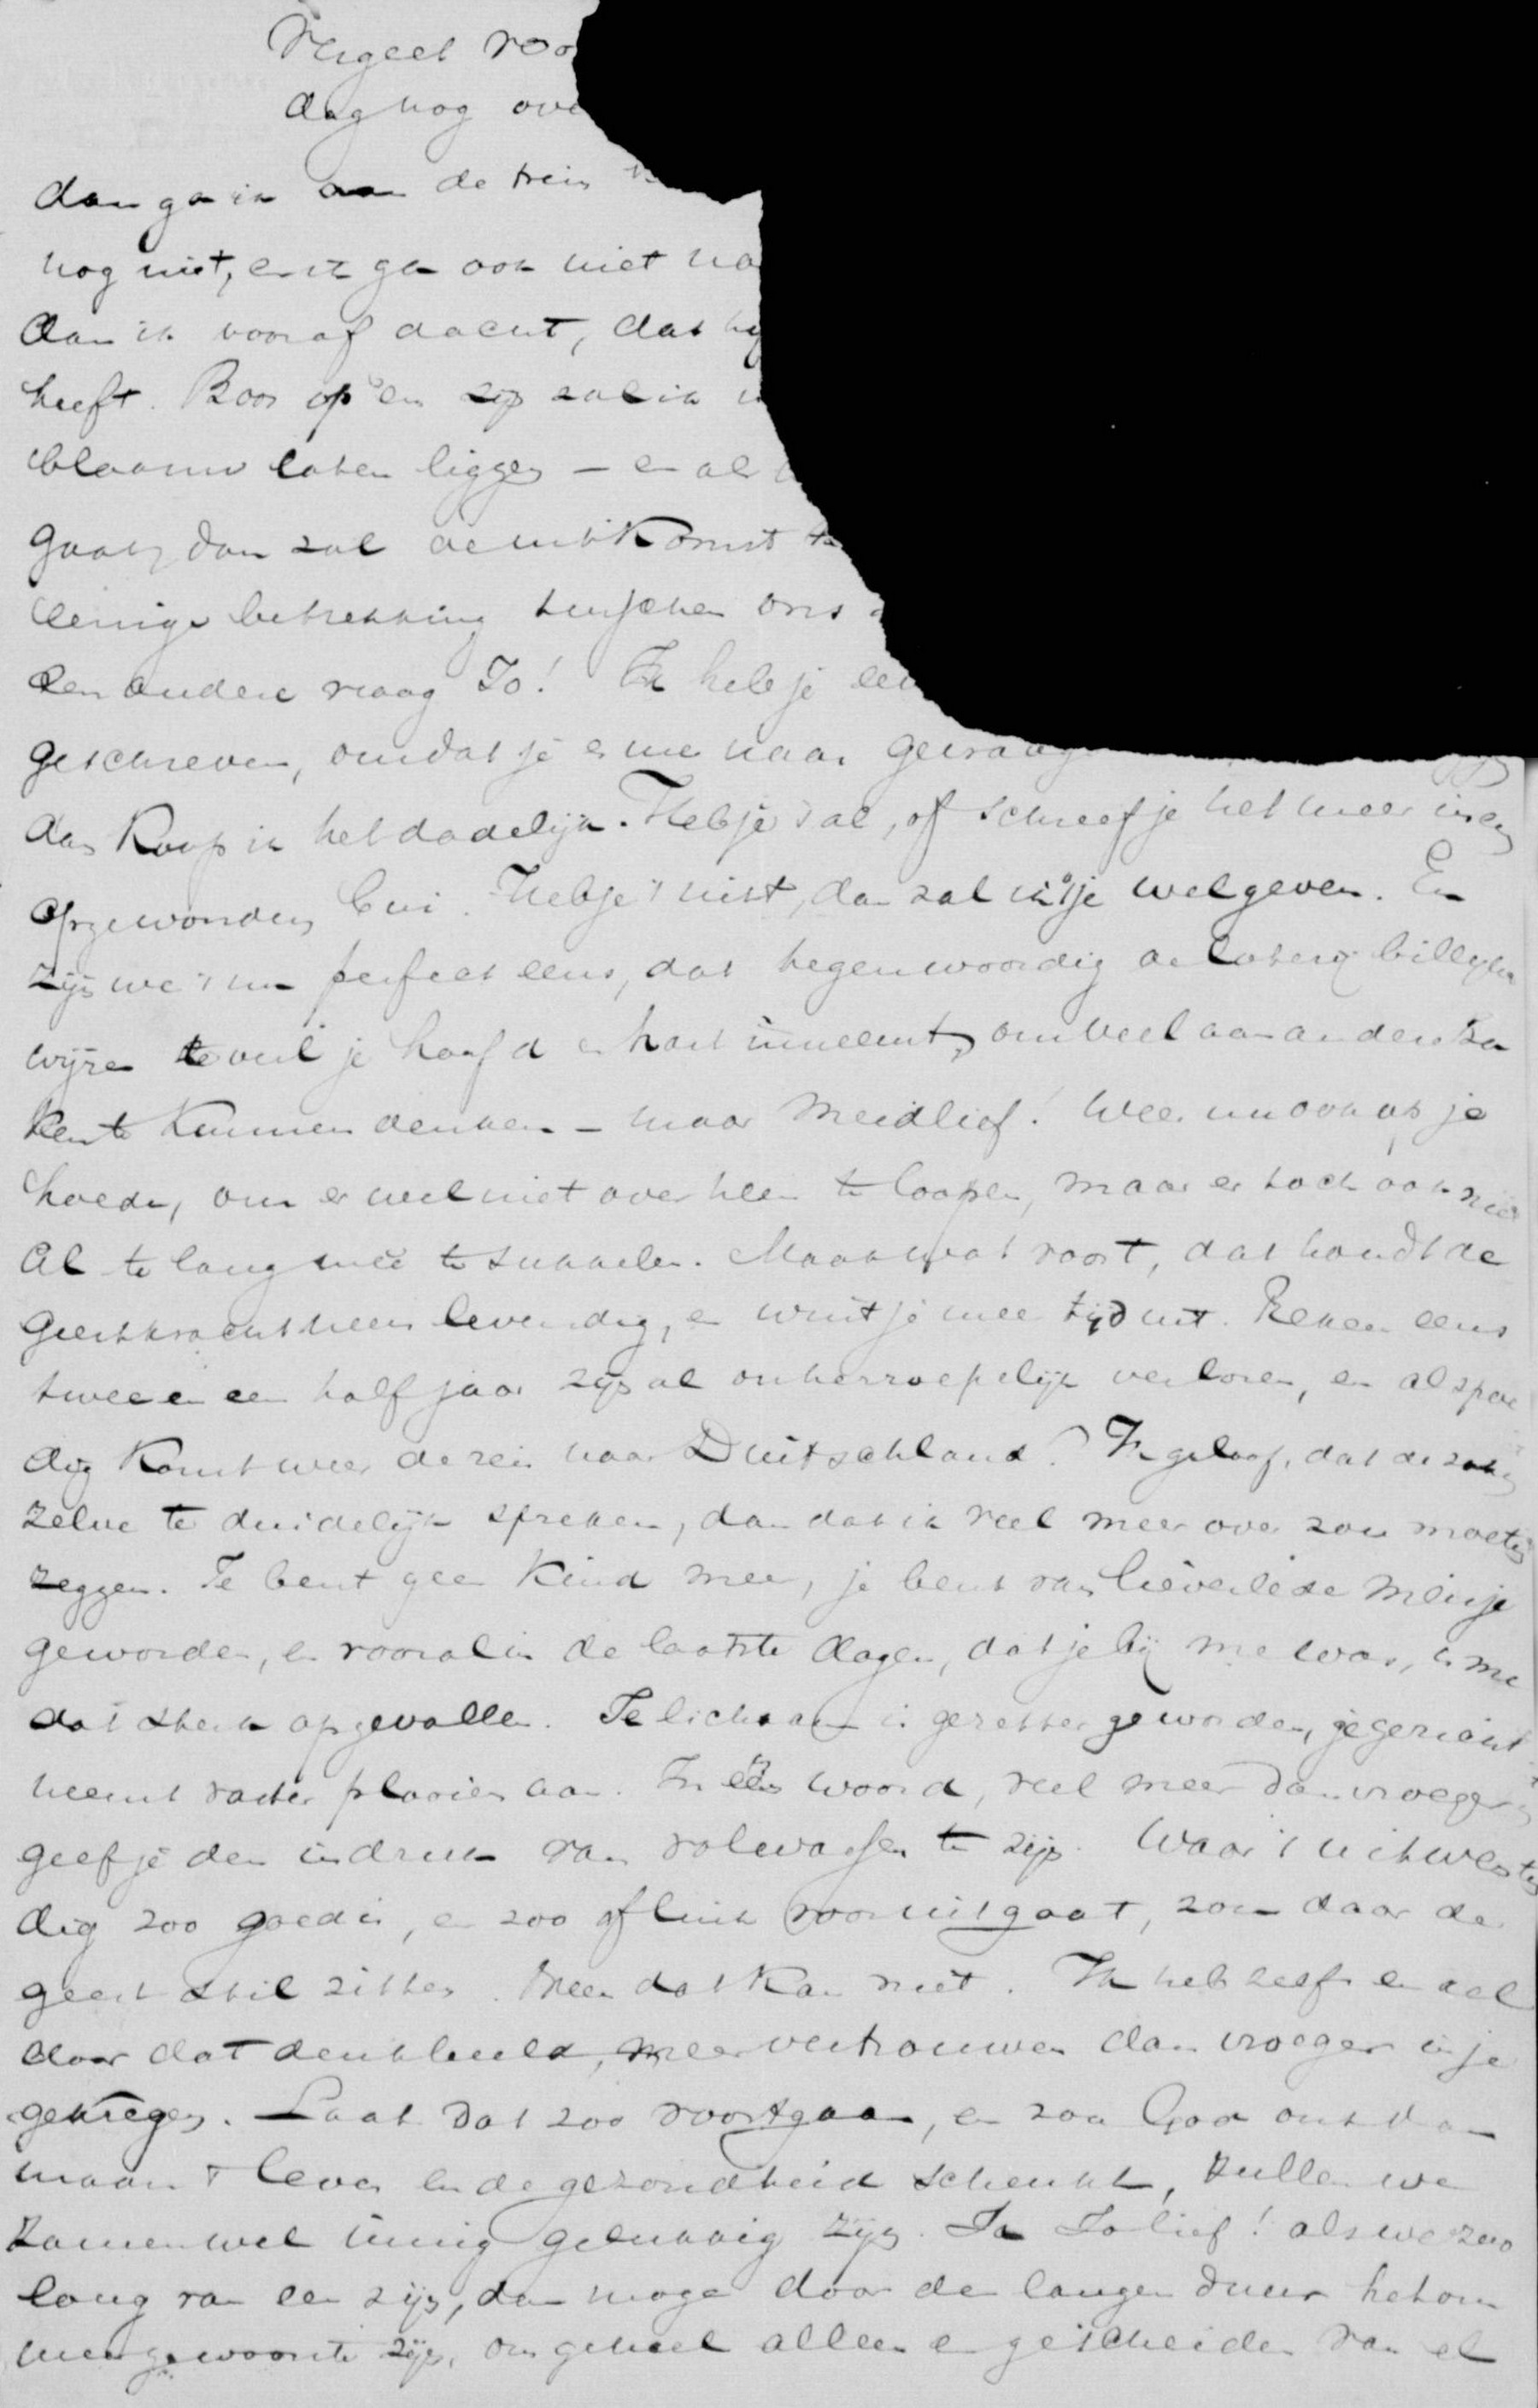 Vergeet voo
dag nog ove
dan ga ik aan de trein
nog niet, en ik ga ook niet na
dan ik vooraf dacht, dat hij
heeft. Boos op 'en zijn zal ik
blaauw laten liggen – en als
gaat, dan zal de uitkomst
eenige betrekking tusschen ons
een andere vraag Jo! Ik heb je een
geschreven, omdat je er me naar gevraag
dan koop ik het dadelijk. Heb je 't al, of schreef je het meer in een
opgewonden bui. Heb je 't niet, dan zal ik 't je wel geven. En
zijn we 't nu perfect eens, dat tegenwoordig de billijker
wijze te veel je hoofd en hart inneemt, om veel aan andere za
ken te kunnen denken – maar meidlief! Wees nu ook op je
hoede, om er wel niet over heen te loopen, maar er toch ook niet
al te lang meê te sukkelen. Maak wat voort, dat houdt de
geestkracht meer levendig, en wint je mee tijd uit. Reken eens
twee en een half jaar zijn al onherroepelijk verloren, en al spoe
dig komt weer de reis naar Duitschland? Ik geloof, dat de zaken
zelve te duidelijk spreken, dan dat ik veel meer over zou moeten
zeggen. Je bent geen kind meer, je bent van lieverlede meisje
geworden, en vooral in de laatste dagen, dat je bij me was, is me
dat sterk opgevallen. Je lichaam is gezetter geworden, je gezicht
neemt vaster plooien aan. In één woord, veel meer dan vroeger
geef je den indruk van volwassen te zijn. Waar 't uitwen
dig zoo goed is, en zoo flink vooruitgaat, zou daar de
geest stil zitten. Neen dat kan niet. Ik heb zelfs en ook
door dat denkbeeld, meer vertrouwen dan vroeger in je
gekregen. Laat dat zoo voortgaan, en zoo God ons dan
maar 't leven en de gezondheid schenkt, zullen we
zamen wel innig gelukkig zijn. Ja Jo lief! als we zoo
lang van een zijn, dan moge door den langen duur het om
mer gewoonte zijn, om geheel alleen en gescheiden van el